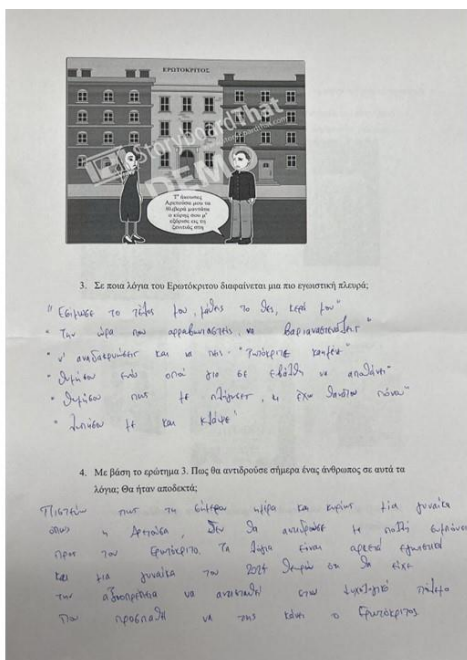 ΕΡΩΤΟΚΡΙΤΟΣ
StoryboardThat
DEMO
Τ' άκουσες
Αρετούσα μου τα
θλιβερά μαντάτα
ο κύρης σου μ'
εξόρισε εις τη
ξενιτιάς στη
3. Σε ποια λόγια του Ερωτόκριτου διαφαίνεται μια πιο εγωιστική πλευρά;
το τέλος μου, μάθεις το θες, κερά μου"
" Την ώρα που αρραβωνιαστείς, να βαριαναστενάξεις "
" ν' αναδακρυώσεις και να πεις· "Ρωτόκριτε καημένε"
" Θυμήσου ενός οπού για σε εβάλθη να αποθάνει"
" Θυμήσου πως με πλήγωσες, κι έχω θανάτου πόνον"
" λυπήσου με και κλάψε"
4. Με βάση το ερώτημα 3. Πως θα αντιδρούσε σήμερα ένας άνθρωπος σε αυτά τα
λόγια; Θα ήταν αποδεκτά;
Πιστεύω πως τη σήμερον ημέρα και κυρίως μία γυναίκα
όπως η Αρετούσα, δεν θα αντιδρούσε με πολλή συμπόνια
προς τον Ερωτόκριτο. Τα λόγια είναι αρκετά εγωιστικά
και μια γυναίκα του 2024 θεωρώ ότι θα είχε
την αξιοπρέπεια να αντισταθεί στον ψυχολογικό πόλεμο
που προσπαθεί να της κάνει ο Ερωτόκριτος